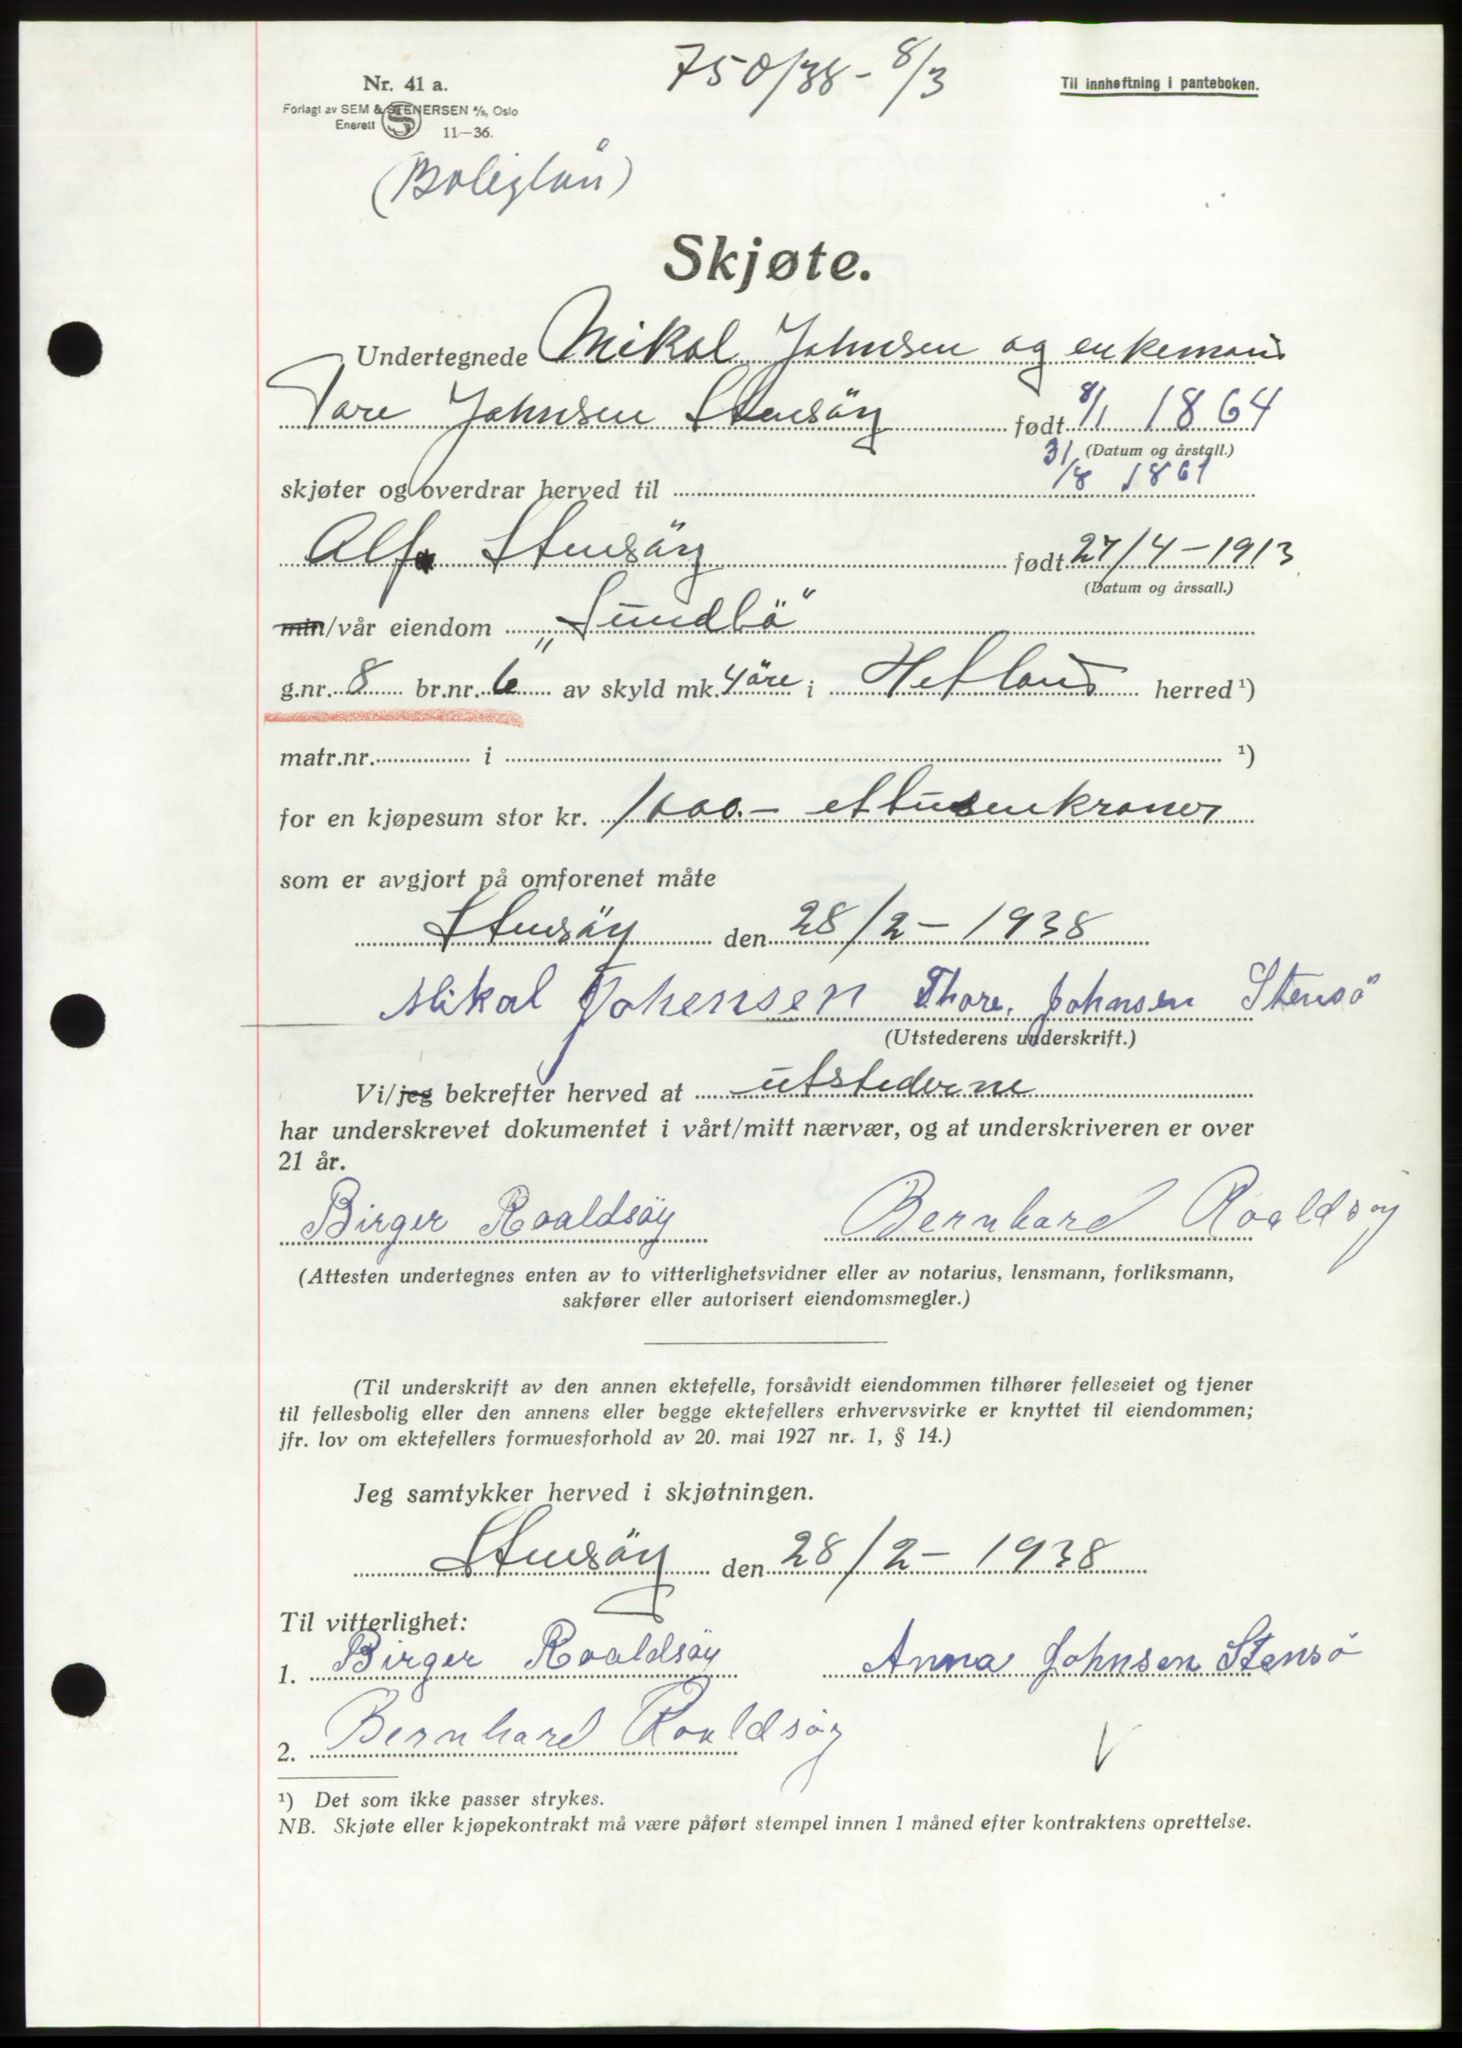 750/38 - 8/3
Nr. 41 a.
Til innheftning i panteboken.
Forlagt av SEM & STENERSEN A/S, Oslo
Enerett 11—36.
(Boliglån)
Skjøte.
Undertegnede Mikal Johnsen og enkemand
Tore Johnsen Stensöy født 8/1 1864
(Datum og årstall.)
31/8 1861
skjøter og overdrar herved til
Alf Stensöy født 27/4-1913
(Datum og årssall.)
min/vår eiendom "Sundbö"
g.nr. 8 br.nr. 6 av skyld mk. 4 öre i Hetland herred ¹)
matr.nr. i ¹)
for en kjøpesum stor kr. 1000.- ettusenkroner
som er avgjort på omforenet måte
Stensöy den 28/2-1938
Mikal Johensen Thore. Johnsen Stensö
(Utstederens underskrift.)
Vi/jeg bekrefter herved at utstederne
har underskrevet dokumentet i vårt/mitt nærvær, og at underskriveren er over
21 år.
Birger Roaldsöy Bernhard Roaldsøy
(Attesten undertegnes enten av to vitterlighetsvidner eller av notarius, lensmann, forliksmann,
sakfører eller autorisert eiendomsmegler.)
(Til underskrift av den annen ektefelle, forsåvidt eiendommen tilhører felleseiet og tjener
til fellesbolig eller den annens eller begge ektefellers erhvervsvirke er knyttet til eiendommen;
jfr. lov om ektefellers formuesforhold av 20. mai 1927 nr. 1, § 14.)
Jeg samtykker herved i skjøtningen.
Stensöy den 28/2-1938
Til vitterlighet:
1. Birger Roaldsöy Anna Johnsen Stensö
2. Bernhard Roaldsøy
¹) Det som ikke passer strykes.
NB. Skjøte eller kjøpekontrakt må være påført stempel innen 1 måned efter kontraktens oprettelse.